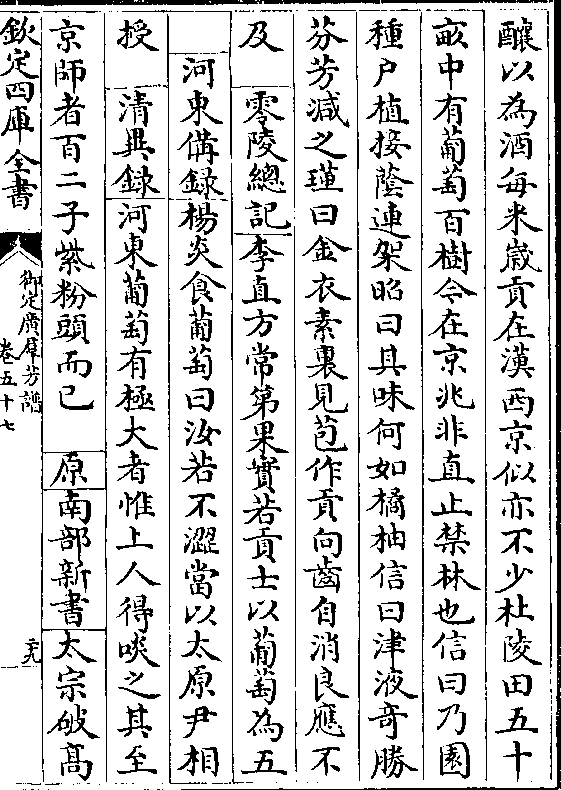 釀以為酒每來嵗貢在漢西京似亦不少杜陵田五十
畝中有葡萄百樹今在京兆非直止禁林也信曰乃園
種户植接蔭連架昭曰其味何如橘柚信曰津液竒勝
芬芳減之瑾曰金衣素裏見苞作貢向齒自消良應不
及 零陵總記李直方常第果實若貢士以葡萄為五
河東備録楊炎食葡萄曰汝若不澀當以太原尹相
授 清異録河東葡萄有極大者惟上人得啖之其至
京師者百二子紫粉頭而已 原南部新書太宗破髙
欽定四庫全書
御定廣羣芳譜
卷五十七
二十九